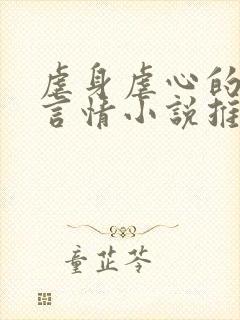 虐身虐心的
言情小説推
童芷苓